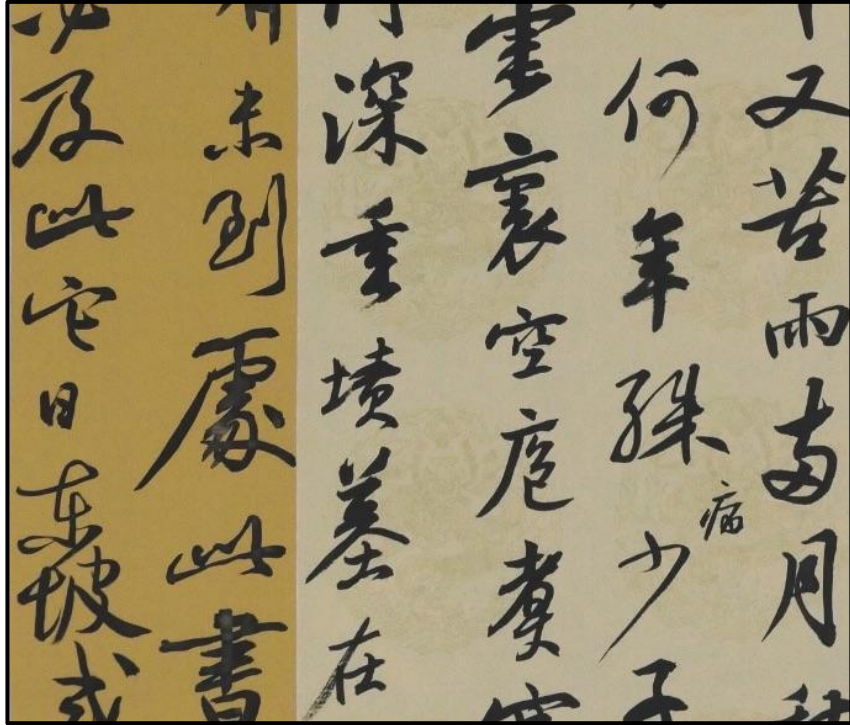 又苦雨兩月秋
何年殊少子
病
雲裏空庖煮寒
門深重墳墓在
有未到處此書
必及此它日東坡或